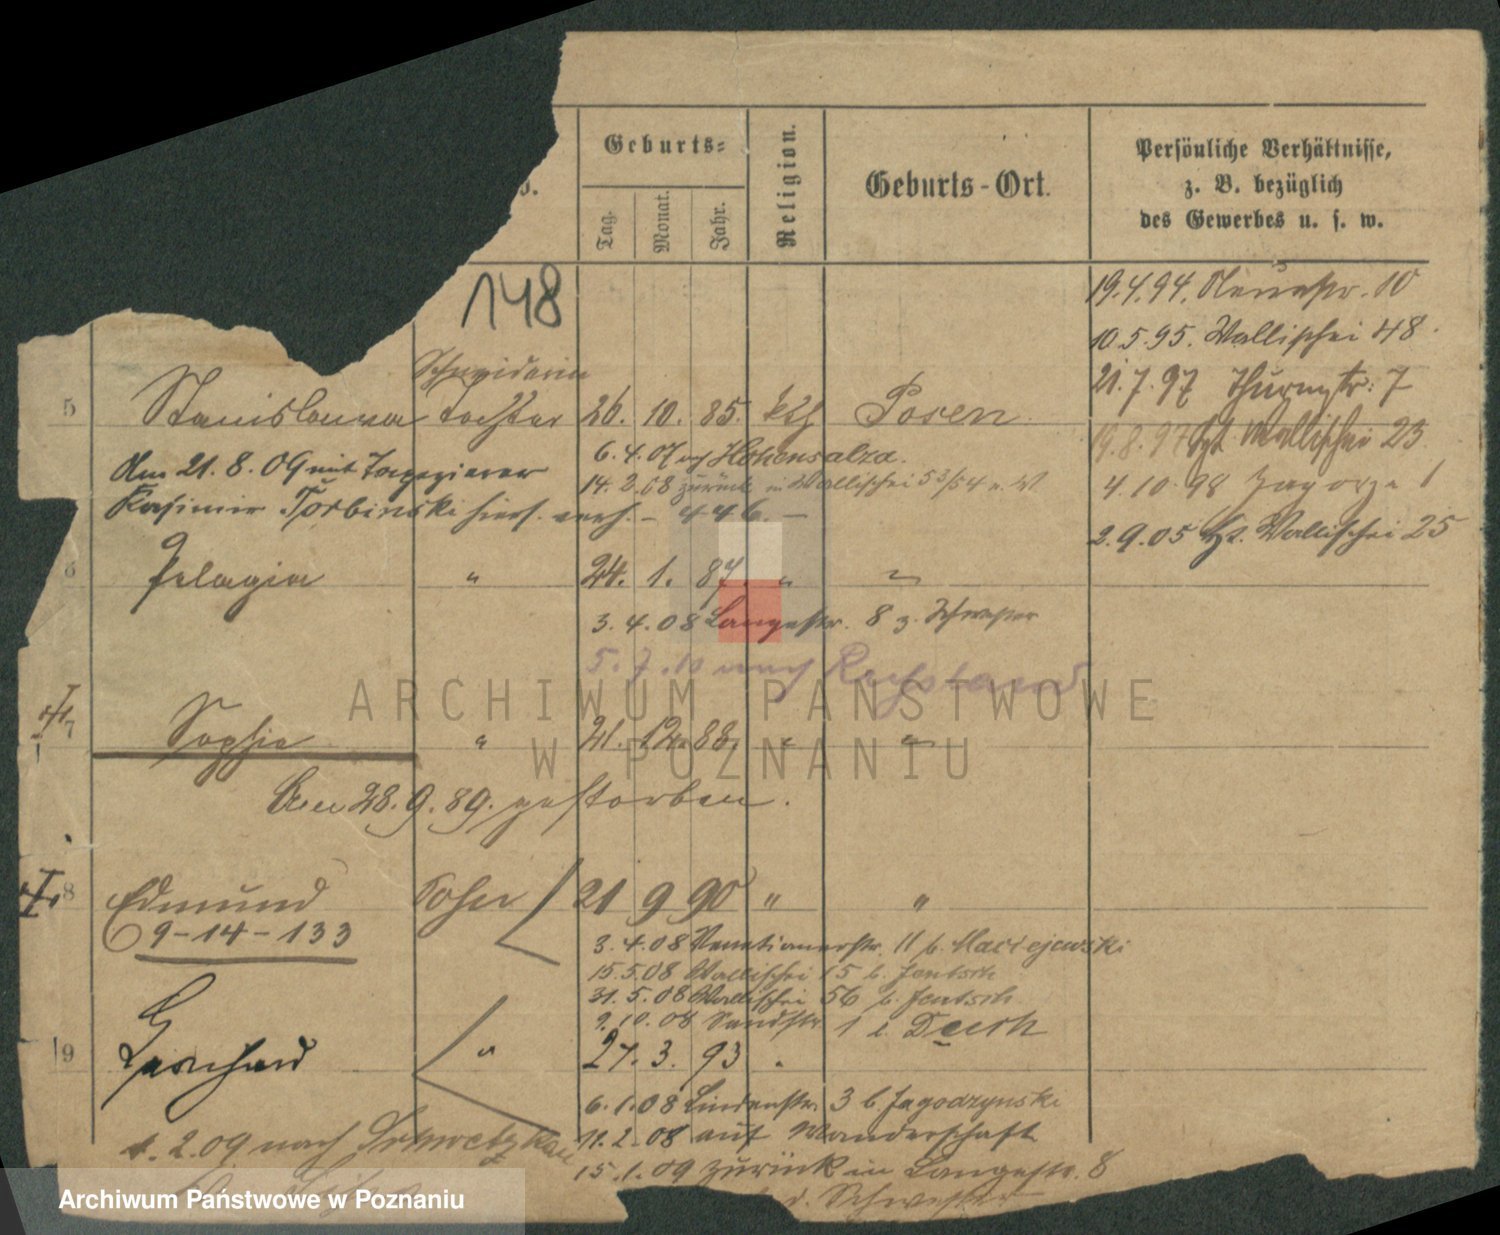 Geburts=
Tag. Monat. Jahr.
Religion.
Geburts-Ort.
Persönliche Verhältnisse,
z. B. bezüglich
des Gewerbes u. s. w.
148
19.4.94. Neuestr. 10
10.5.95. Wallischei 48.
21.7.97 Thurmstr. 7
19.8.97 Wallischei 23
4.10.98 Zagorze 1
2.9.05 Wallischei 25
Schneiderin
5 Stanislawa Tochter 26. 10. 85. kth Posen
6.4.07 n Hohensalza.
Am 21.8.09 mit Tapezierer
14.2.08 zurück Wallischei 53/54
Kasimir Torbinski hiers. verh. - 446. -
6 Pelagia " 24. 1. 87. " "
3.4.08 Langestr. 8 z. Schwester
5.7.10 nach
7 Sophie " 21. 12. 88. " "
Am 28.9.89. gestorben.
8 Edmund Sohn 21 9 90 " "
9-14-133
3.4.08 Venetianerstr. 11 b. Maciejewski
15.5.08 Wallischei 15 b. Jentsch
31.5.08 Wallischei 56 b. Jentsch
9.10.08 Sandstr. 1
9 Gerhard " 27. 3. 93 "
6.1.08 Lindenstr. 3 b. Jagodzynski
11.2.08 auf Wanderschaft
1.2.09 nach
15.1.09 zurück in Langestr. 8
d. Schwester
ARCHIWUM PAŃSTWOWE
W POZNANIU
Archiwum Państwowe w Poznaniu